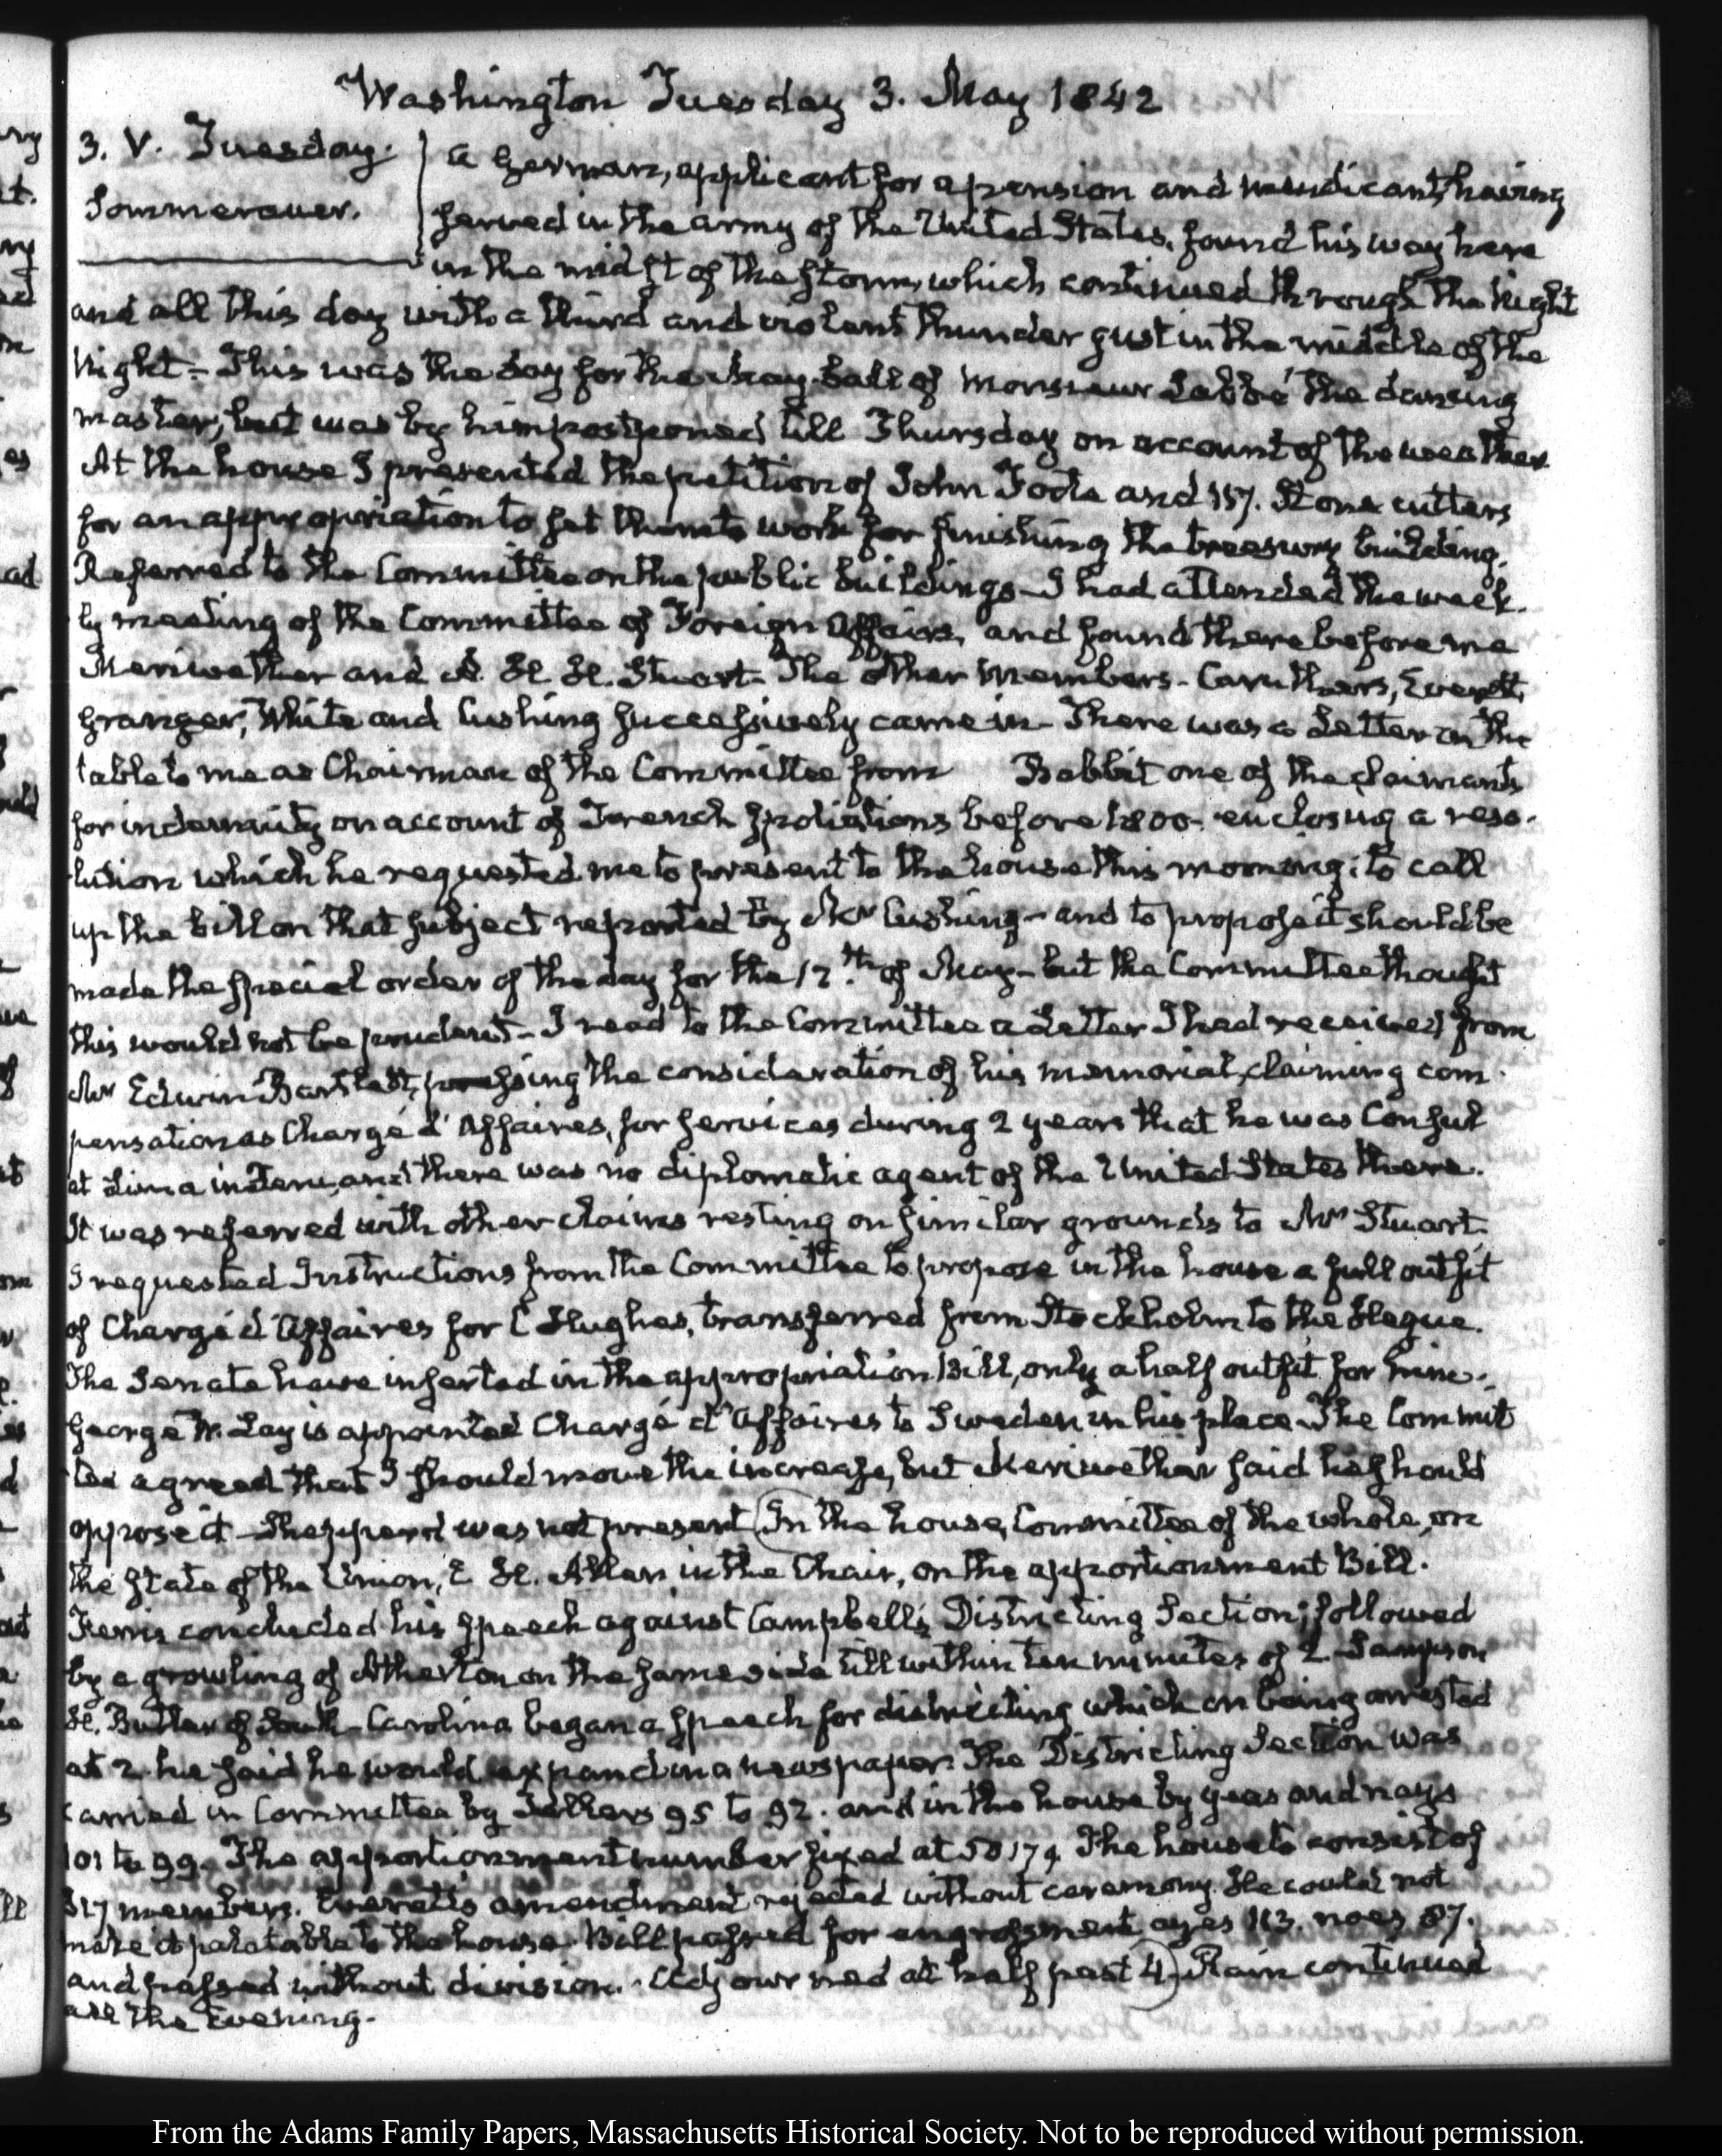 Washington Tuesday 3. May 1842
3. V. Tuesday.
Sommerauer.
A German, applicant for a pension and mendicant, having
served in the army of the United States, found his way here
in the midst of the storm, which continued through the Night
and all this day with a third and violent thunder gust in the middle of the
Night- This was the day for the May-ball of Monsieur Labbé the dancing
master, but was by him postponed till Thursday on account of the weather
At the house I presented the petition of John Foote and 157. Stone cutters
for an appropriation to set them to work for finishing the treasury building.
Referred to the Committee on the public buildings- I had attended the week-
ly meeting of the Committee of Foreign Affairs, and found there before me
Meriwether and A. H. H. Stuart- The other members- Caruthers, Everett,
Granger, White and Cushing successively came in- There was a Letter on the
table to me as Chairman of the Committee from Babbit one of the claimants
for indemnity on account of French spoliations before 1800- enclosing a reso-
lution which he requested me to present to the house this morning: to call
up the bill on that subject reported by Mr Cushing- and to propose it should be
made the special order of the day for the 12.th of May- but the Committee thought
this would not be prudent- I read to the Committee a Letter I had received from
Mr Edwin Bartlett, pressing the consideration of his memorial, claiming com-
pensation as Chargé d'Affaires, for services during 2 years that he was Consul
at Lima in Peru, and there was no diplomatic agent of the United States there.
It was referred with other claims resting on similar grounds to Mr Stuart-
I requested Instructions from the Committee to propose in the house a full outfit
of Chargé d'Affaires for C Hughes, transferred from Stockholm to the Hague.
The Senate have inserted in the appropriation Bill, only a half outfit for him.
George W. Lay is appointed Chargé d'Affaires to Sweden in his place- The Commit
tee agreed that I should move the increase, but Meriwether said he should
oppose it- Shepperd was not present (In the house, Committee of the whole, on
the state of the Union, E H. Allen in the Chair, on the apportionment Bill.
Ferris concluded his speech against Campbell's Districting Section; followed
by a growling of Atherton on the same side till within ten minutes of 2. Sampson
H. Butler of South-Carolina began a speech for districting which on being arrested
at 2. he said he would expand in a newspaper. The Districting Section was
carried in Committee by Tellers 95 to 92. and in the house by yeas and nays
101 to 99. The apportionment number fixed at 50179 The house to consist of
217 members. Everett's amendment rejected without ceremony. He could not
make it palatable to the house. Bill passed for engrossment ayes 113. noes 87.
and passed without division.- Adjourned at half past 4) Rain continued
all the Evening.